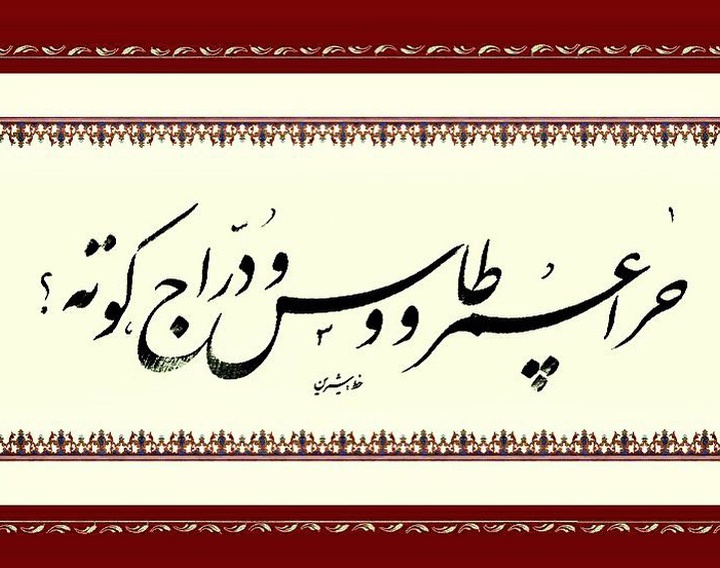 چرا عُمر طاووس و دُرّاج کوته؟
خط: شیرین